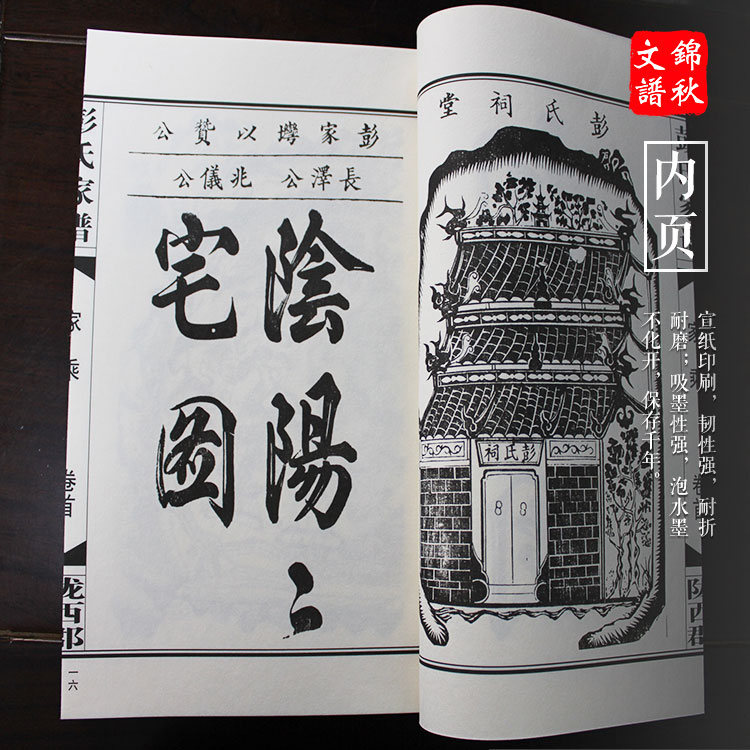 錦秋
文譜
内页
宣纸印刷，韧性强，耐折
耐磨；吸墨性强，泡水墨
不化开，保存千年。
彭氏祠堂
彭氏祠
卷首
陇西郡
彭家壪以贊公
長澤公 兆儀公
陰陽二
宅圖
彭氏家譜
家乘
卷首
陇西郡
一六